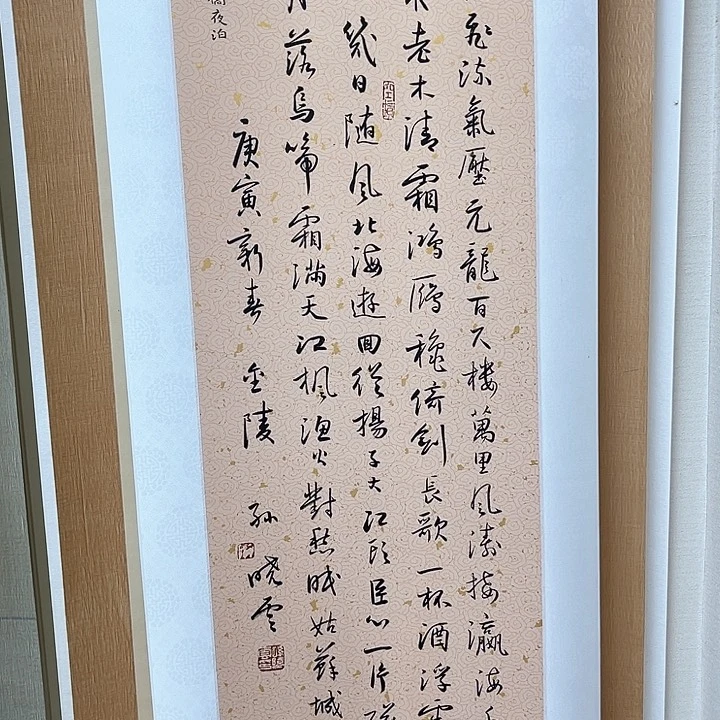 飛流氣壓元龍百尺樓萬里風濤接瀛海千
老木清霜鴻鴈穐倚劍長歌一杯酒浮雲
幾日隨風北海遊回從揚子大江頭臣心一片磁
月落烏啼霜滿天江楓漁火對愁眠姑蘇城
橋夜泊
庚寅新春 金陵 孫曉雲